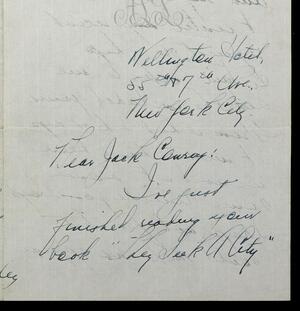 Wellington Hotel,
55th & 7th Ave.
New York City
Dear Jack Conroy:
I've just
finished reading your
book "They Seek A City"